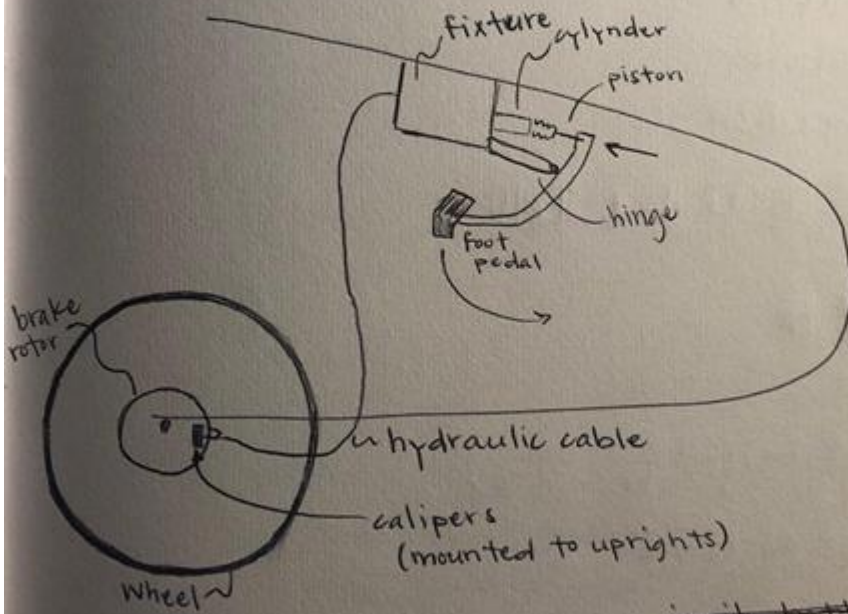 fixture
cylynder
piston
hinge
foot
pedal
brake
rotor
hydraulic cable
calipers
(mounted to uprights)
wheel